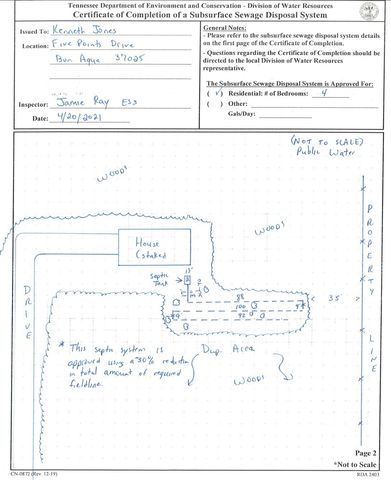 Tennessee Department of Environment and Conservation - Division of Water Resources
Certificate of Completion of a Subsurface Sewage Disposal System
Issued To: Kenneth Jones
Location: Five Points Drive
Bon Aqua 37025
Inspector: Jamie Ray E33
Date: 4/20/2021
General Notes:
- Please refer to the subsurface sewage disposal system details
on the first page of the Certificate of Completion.
- Questions regarding the Certificate of Completion should be
directed to the local Division of Water Resources
representative.
The Subsurface Sewage Disposal System is Approved For:
(✓) Residential: # of Bedrooms: 4
( ) Other:
Gals/Day:
(NOT TO SCALE)
Public Water
WOODS
WOODS
House
(staked
PROPERTY
LINE
DRIVE
Septic
Tank
15'
88
100
92
35
* This septic system is
approved using a 30% reduction
in total amount of required
fieldline.
Dup. Area
WOODS
Page 2
*Not to Scale
CN-0872 (Rev. 12-19)
RDA 2403